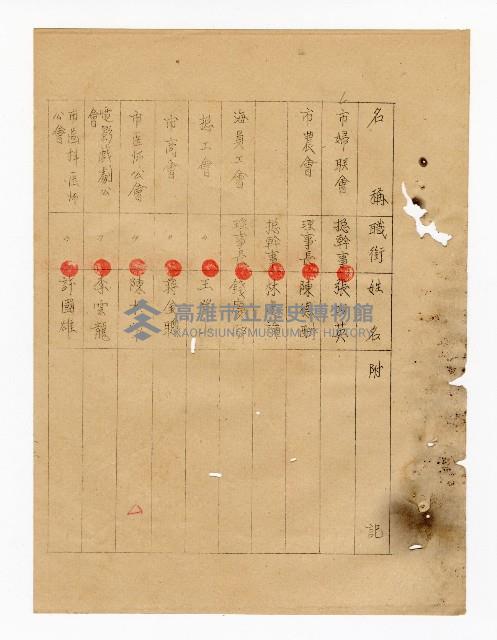 名稱 職銜 姓名 附記
市婦联會 總幹事 張 英
市農會 理事長 陳
總幹事 林
海員工會 理事長 錢
總工會 〃 王
市商會 〃 蔣金
市医师公會 〃 陳
電影戲劇公會 〃 李雲龍
市齒科医师公會 〃 許國雄
高雄市立歷史博物館
KAOHSIUNG MUSEUM OF HISTORY